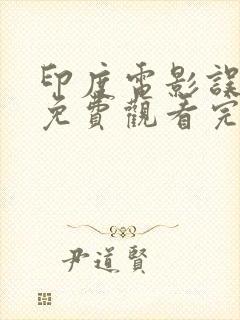 印度電影誤
免費觀看完
尹道賢